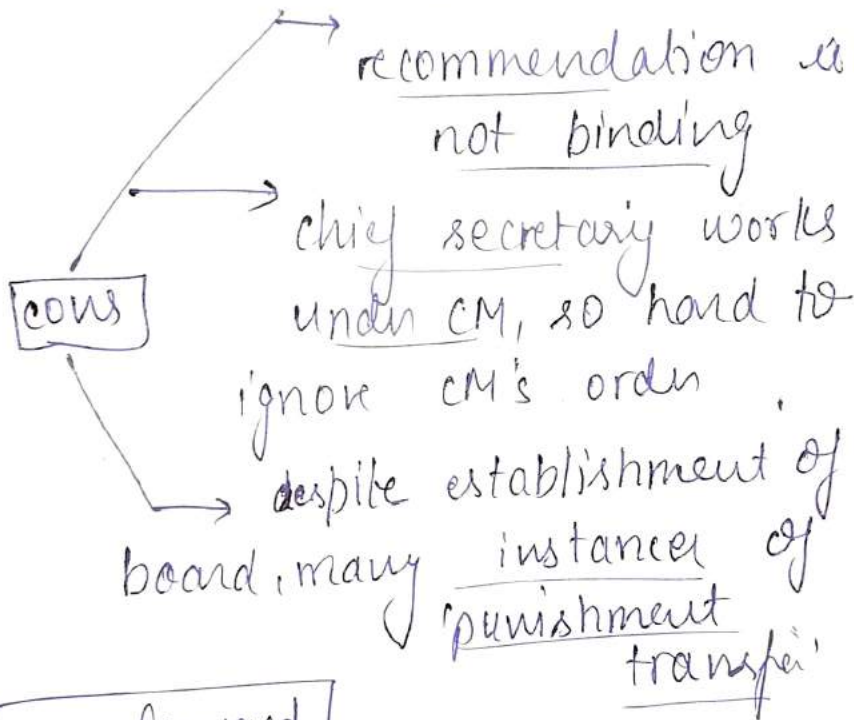 recommendation is
not binding
chief secretary works
cons
under CM, so hard to
ignore CM's order
despite establishment of
board, many instances of
'punishment
transfer'
forward